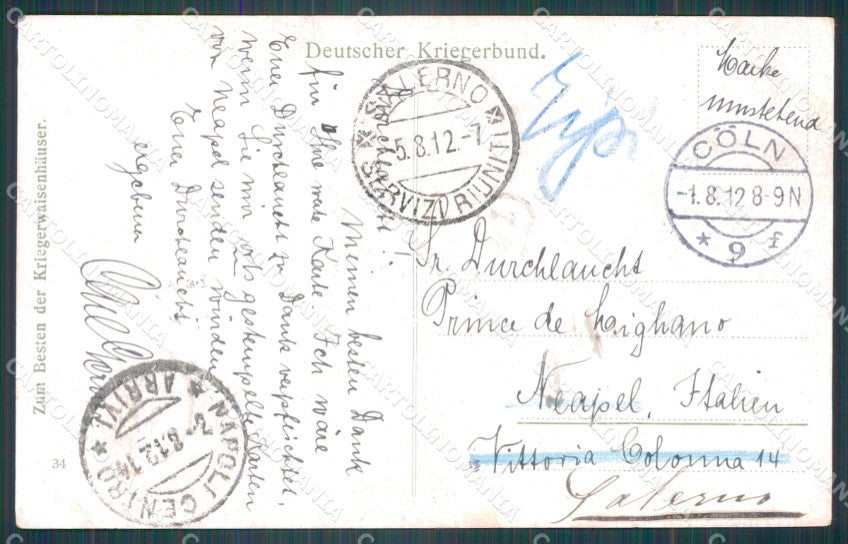 Deutscher Kriegerbund.
Zum Besten der Kriegerwaisenhäuser.
34
Marke
umstehend
CÖLN
-1.8.12 8-9N
* 9 f
SALERNO
5.8.12.-7
* SERVIZI RIUNITI *
NAPOLI CENTRO
* ARRIVI *
Durchlaucht!
Meinen besten Dank
für Ihre werte Karte. Ich wäre
Euer Durchlaucht zu Dank verpflichtet,
wenn Sie mir oft gestempelte Karten
von Neapel senden würden
Euer Durchlaucht
ergebener
Sr. Durchlaucht
Prince de Mighano
Neapel, Italien
Vittoria Colonna 14
Salerno
CARTOLINOMANIA